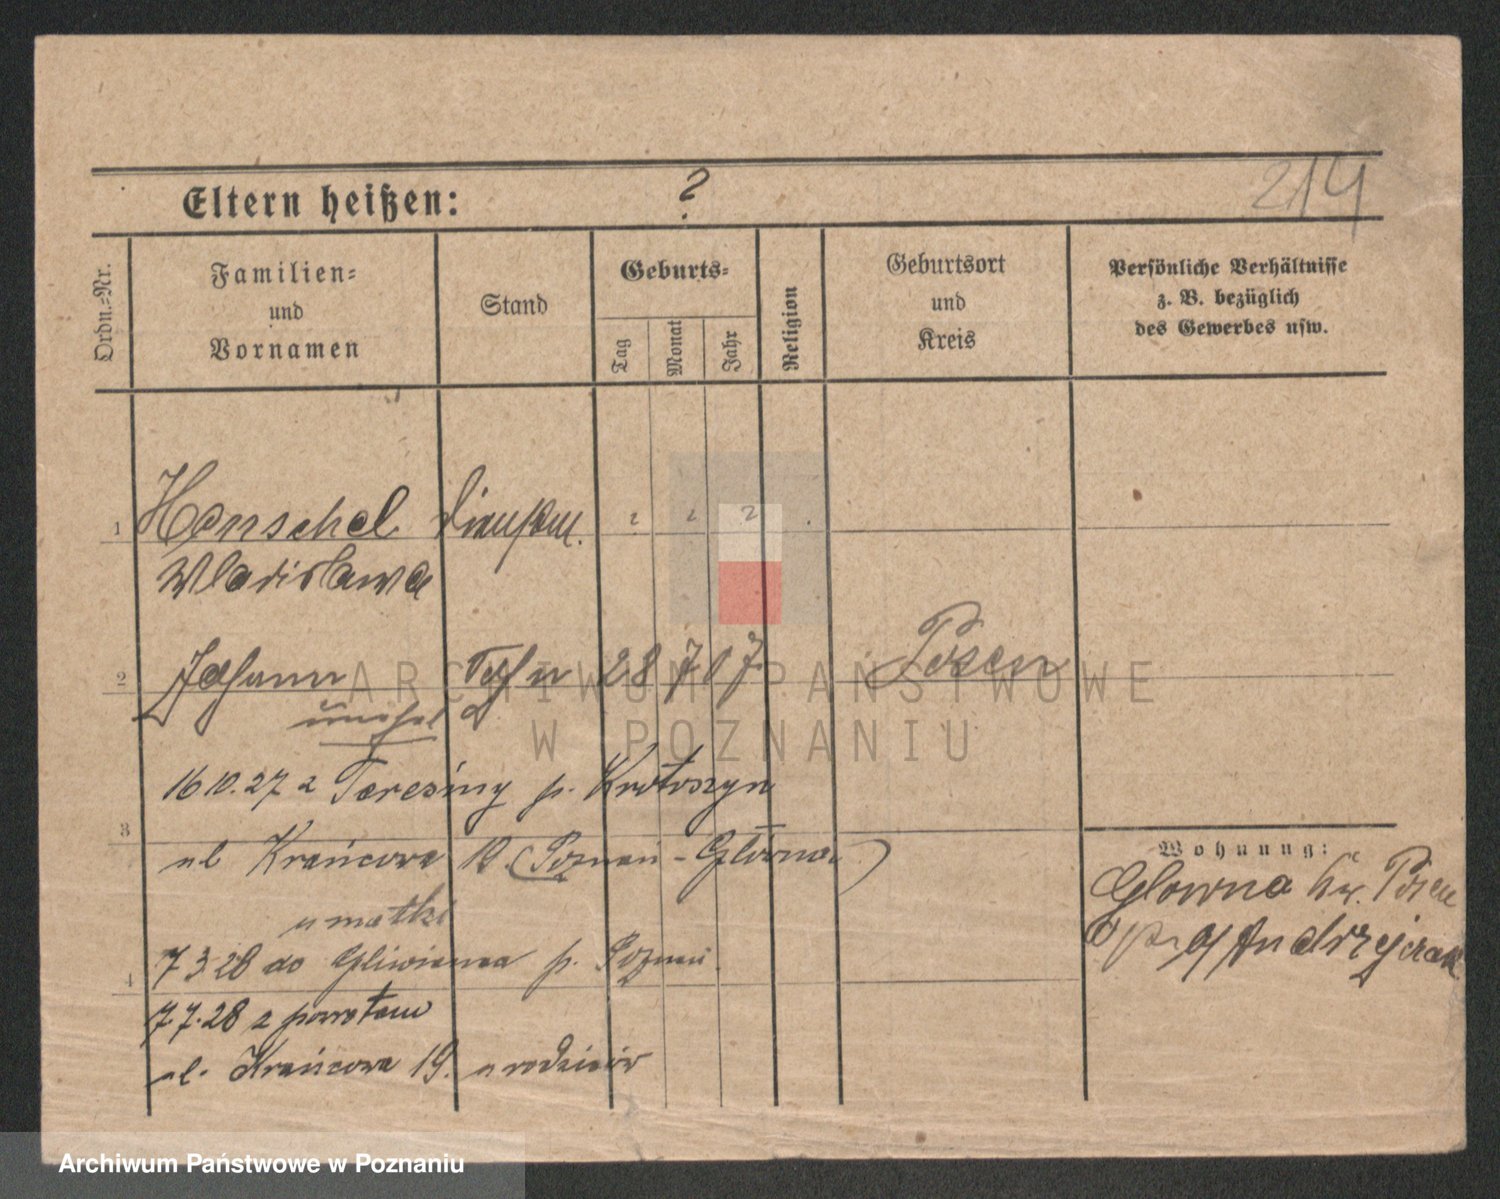 214
Eltern heißen: ?
Ordn.-Nr.
Familien-
und
Vornamen
Stand
Geburts-
Tag
Monat
Jahr
Religion
Geburtsort
und
Kreis
Persönliche Verhältnisse
z. B. bezüglich
des Gewerbes usw.
1 Henschel ? ? ?
Wladislawa
2 Johann Sohn 28 7 07 Posen
unehel
16.10.27 z Teresiny p. Krotoszyn
3
ul Krańcowa 19. (Poznań - Główna)
u matki
7 3 28 do p. Poznań
4
7.7.28 z powrotem
ul. Krańcowa 19. u rodziców
Wohnung:
Glowna Kr. Posen
Andrzejczak
ARCHIWUM PAŃSTWOWE
W POZNANIU
Archiwum Państwowe w Poznaniu